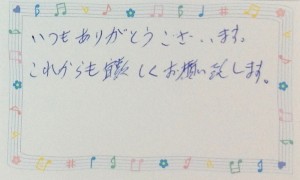 いつもありがとうございます。
これからも宜しくお願い致します。